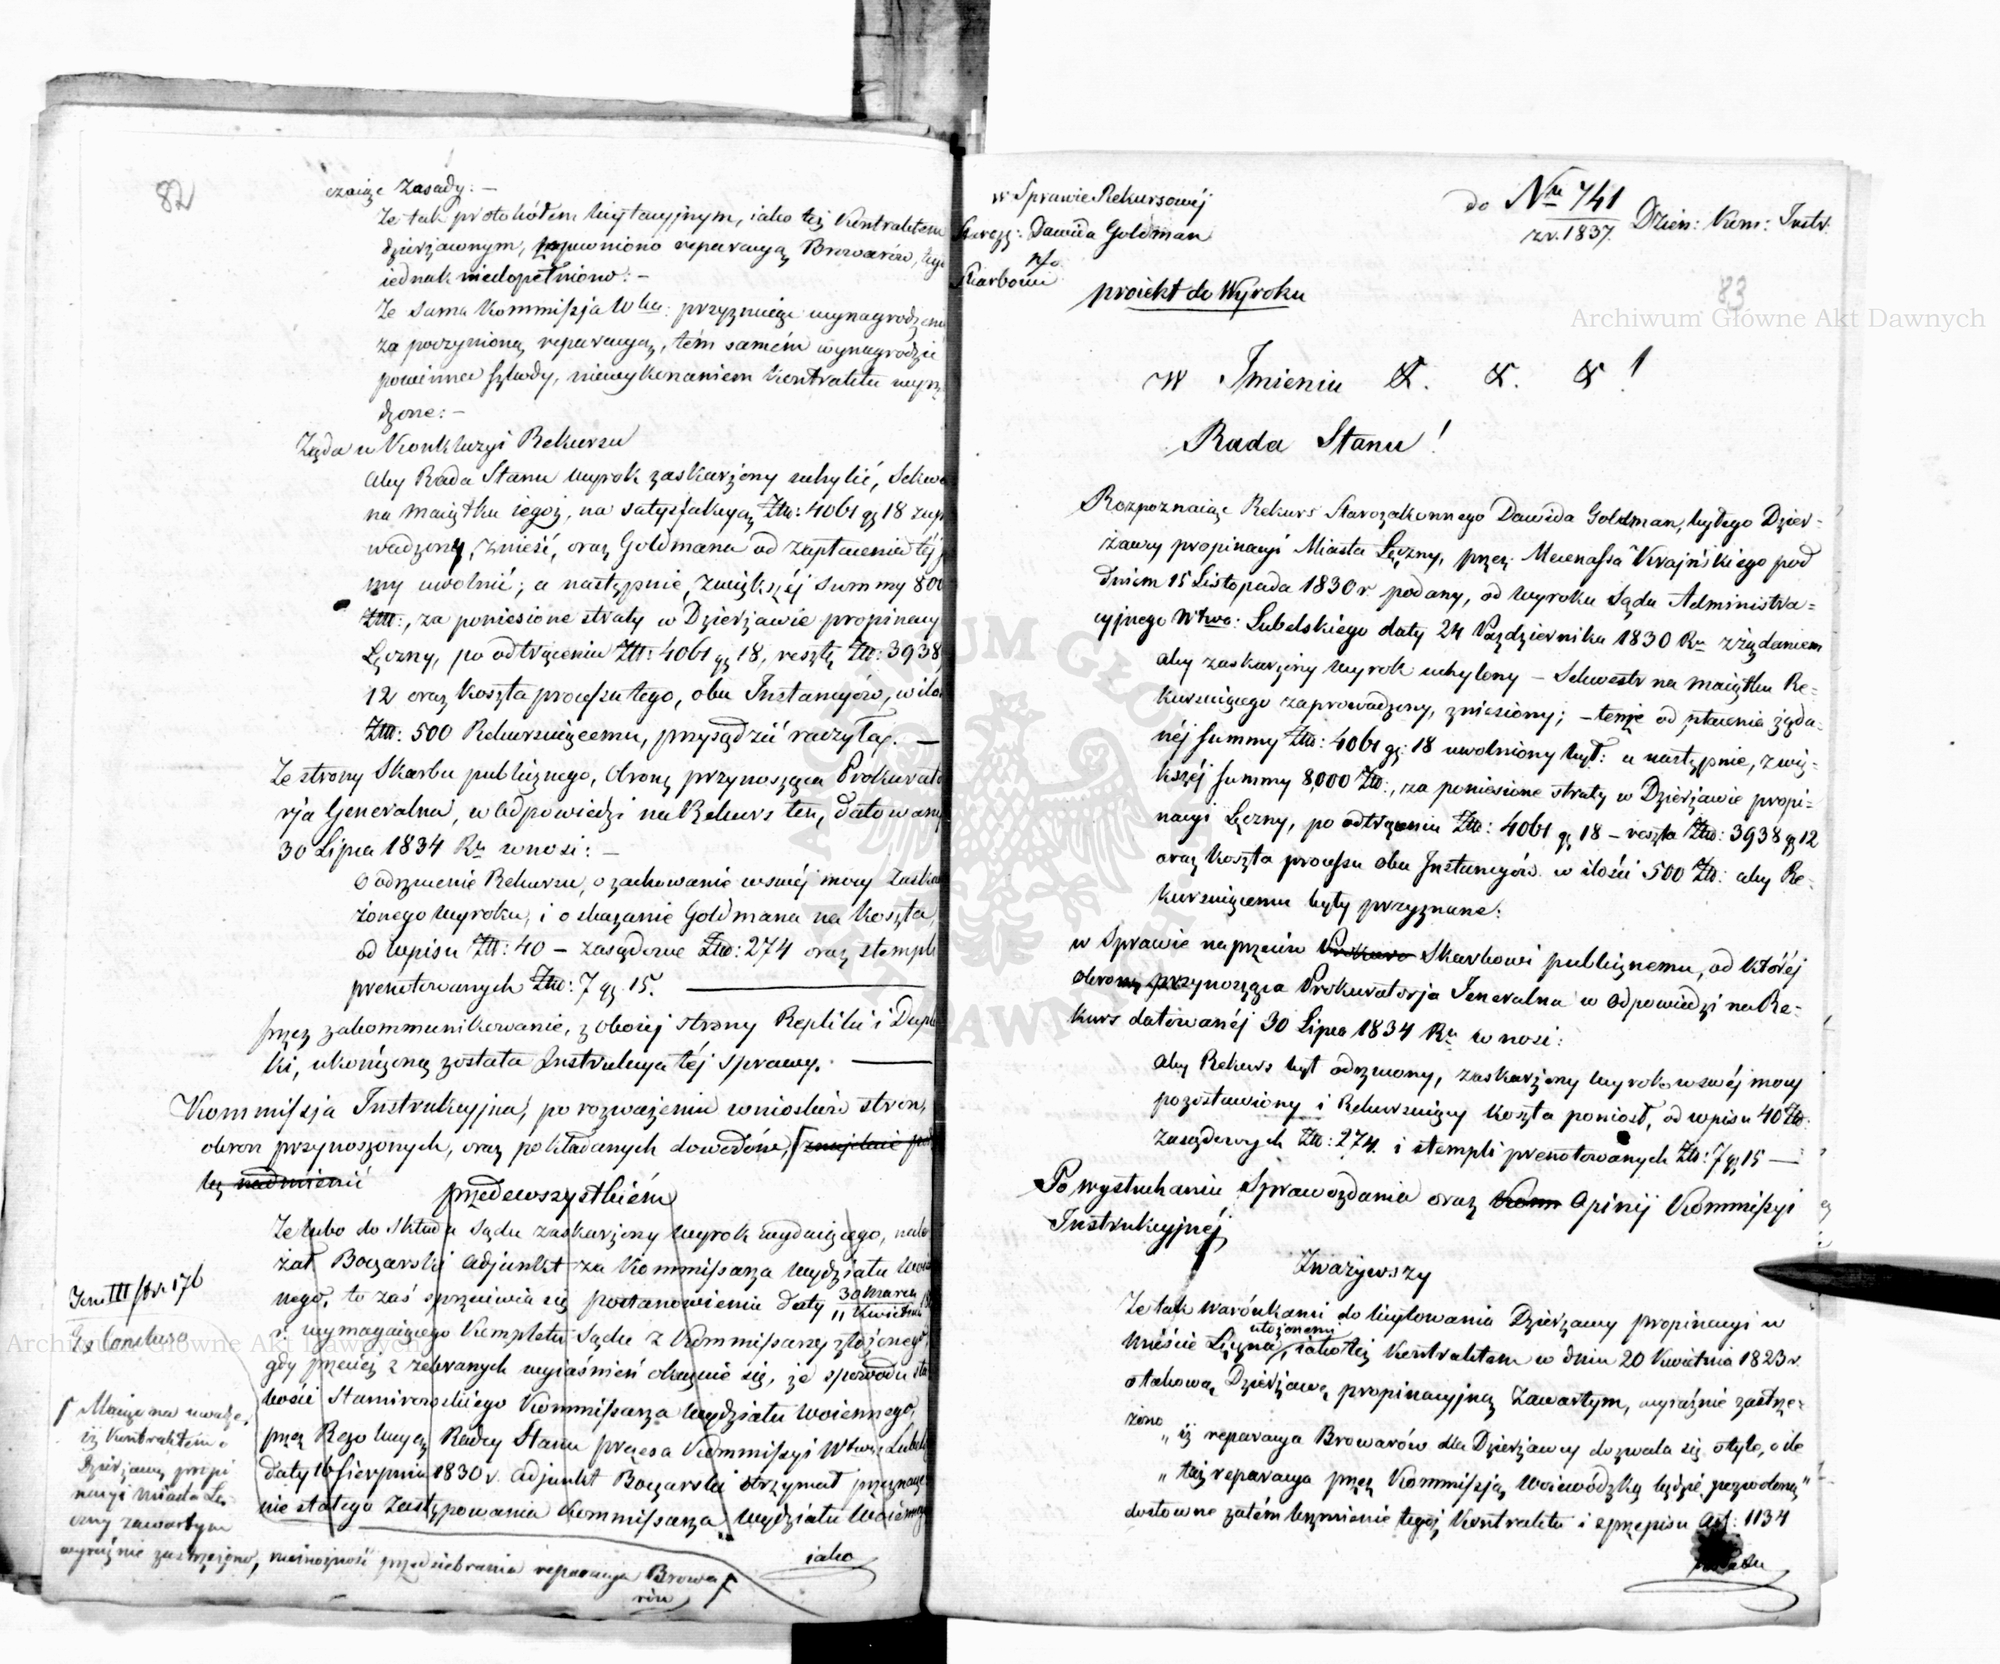 82
czaiące zasady: —
Że tak protokółem licytacyjnym, iako też Kontraktem
dzierżawnym, zapewniono reparacyą Browarów,
iednak niedopełniono: —
Że sama Kommissja Wka: przyznaiąc wynagrodzenie
za poczynioną reparacyą, tém samém wynagrodzić
powinna szkody, niewykonaniem Kontraktu wyrzą
dzone: —
Żąda w Konkluzyi Rekursu
aby Rada Stanu wyrok zaskarżony uchylić, Sekwe
na maiątku iegoż, na satysfakcyą Złtt: 4061 gr 18 zapro
wadzony, znieść, oraz Goldmana od zapłacenia téj
my uwolnić; a następnie, zwiększéj summy 800
Złtt:, za poniesione straty w Dzierżawie propinacyi
Łęczny, po odtrąceniu Złtt: 4061 gr 18, resztę Złtt: 3938
12 oraz koszta processu tego, obu Instancyów, w ilo
Złtt: 500 Rekursuiącemu, przysądzić raczyła. —
Ze strony Skarbu publicznego, obronę przynosząca Prokurato
rja Generalna, w odpowiedzi na Rekurs ten, datowany
30 Lipca 1834 Ru wnosi: —
o odrzucenie Rekursu, o zachowanie w swéj mocy zaskar
żonego wyroku, i o skazanie Goldmana na koszta,
od wpisu Złtt: 40 — zasądzone Złtt: 274 oraz stempli
prenotowanych Złtt: 7 gr 15.
przez zakommunikowanie, z obojej strony Repliki i Dupli
ki, ukończoną została Instrukcya téj sprawy. —
Kommissja Instrukcyjna, po rozważeniu wniosków stron,
obron przynoszonych, oraz pokładanych dowodów, znajduie
nadmienić
przedewszystkiém
Że lubo do składu Sądu zaskarżony wyrok wydaiącego, nale
żał Bogarski Adjunkt za Kommissarza Wydziału Woie
nego, to zaś sprzeciwia się postanowieniu daty 30 Marca
11 Kwietnia
r. wymagaiącego kompletu Sądu z Kommissarzy złożonego,
gdy przecież z zebranych wyiaśnień okazuie się, że spowodu sła
bości Stamirowskiego Kommissarza Wydziału Woiennego,
przez Rezolucyą Radcy Stanu prezesa Kommissyi Wtwa: Lubel
daty 16 Sierpnia 1830 r. Adjunkt Bogarski otrzymał przeznacze
nie stałego zastępowania Kommissarza Wydziału Woiennego
iako
Tom III str. 176
Maiąc na uwadze,
iż Kontraktem o
Dzierżawę propi
nacyi miasta Łę-
czny zawartym
wyraźnie zastrzeżono, możność przedsiebrania reparacyi Browa
rów
w Sprawie Rekursowéj
Starozz: Dawida Goldman
Skarbowi
proiekt do Wyroku
do Nru 741
z r. 1837. Dzien: Kom: Instr.
83
W Imieniu &. &. &!
Rada Stanu!
Rozpoznaiąc Rekurs Starozakonnego Dawida Goldman, byłego Dzier-
żawcy propinacyi Miasta Łęczny, przez Mecenassa Krajńskiego pod
dniem 15 Listopada 1830 r podany, od wyroku Sądu Administra-
cyjnego Wtwa: Lubelskiego daty 24 Października 1830 Ru z żądaniem
aby zaskarżony wyrok uchylony — Sekwestr na maiątku Re-
kursuiącego zaprowadzony, zniesiony; — tenże od płacenia żąda-
néj summy Złtt: 4061 gr: 18 uwolniony był: a następnie, zwię-
kszéj summy 8,000 Złtt:, za poniesione straty w Dzierżawie propi-
nacyi Łęczny, po odtrąceniu Złtt: 4061 gr 18 — reszta Złtt: 3938 gr 12
oraz koszta processu obu Instancyów w ilości 500 Złtt: aby Re-
kursuiącemu były przyznane:
w Sprawie naprzeciw Skarbowi publicznemu, od któréj
obronę przynosząca Prokuratorja Jeneralna w odpowiedzi na Re-
kurs datowanéj 30 Lipca 1834 Ru wnosi:
aby Rekurs był odrzucony, zaskarżony wyrok w swéj mocy
pozostawiony i Rekursuiący koszta poniosł, od wpisu 40 Złtt:
zasądzonych Złtt: 274. i stempli prenotowanych Złtt: 7 gr 15 —
Po wysłuchaniu Sprawozdania oraz Opinij Kommissyi
Instrukcyjnéj
Zważywszy
Że tak warónkami do licytowania Dzierżawy propinacyi w
mieście Łęczna, ułożonemi iako też Kontraktem w dniu 20 Kwietnia 1823 r.
o takową Dzierżawę propinacyjną zawartym, wyraźnie zastrze-
żono „iż reparacya Browarów dla Dzierżawcy dozwala się o tyle, o ile
„taż reparacya przez Kommissją Woiewódzką będzie pozwoloną”
dosłowne zatém brzmienie tegoż Kontraktu i z przepisu Art: 1134